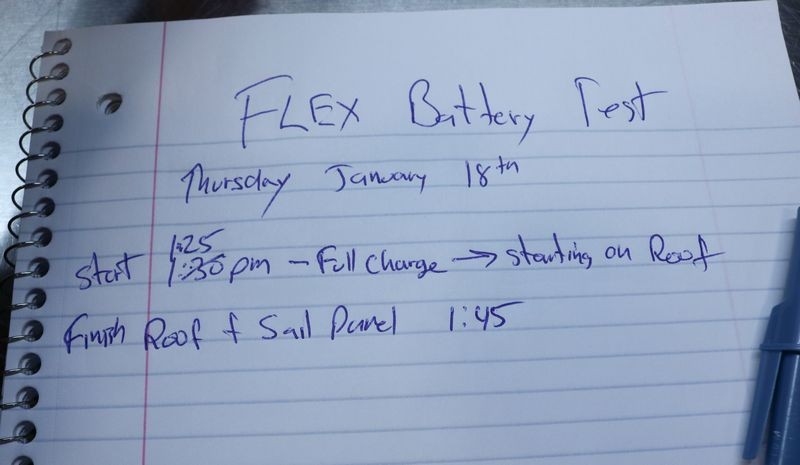 FLEX Battery Test
Thursday January 18th
1:25
start 1:30 pm - Full Charge → starting on Roof
Finish Roof + Sail Panel 1:45